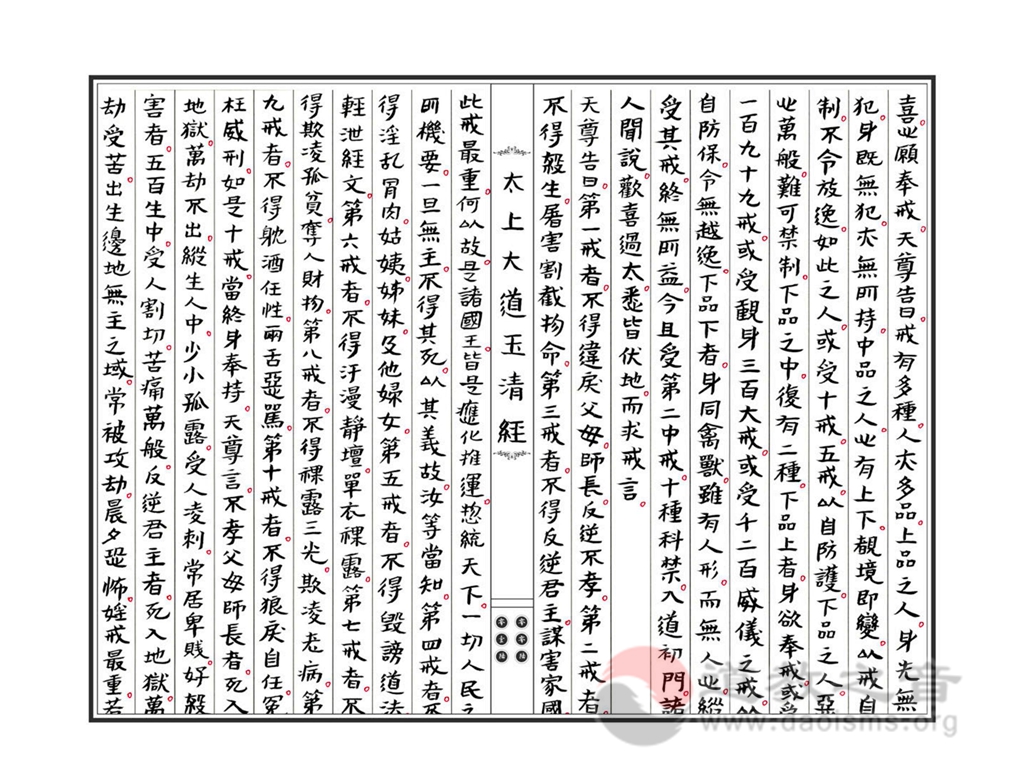 喜心願奉戒天尊告曰戒有多種人亦多品上品之人身先無
犯身既無犯亦無所持中品之人心有上下覩境即變以戒自
制不令放逸如此之人或受十戒五戒以自防護下品之人惡
心萬般難可禁制下品之中復有二種下品上者身欲奉戒或受
一百九十九戒或受觀身三百大戒或受千二百威儀之戒
自防保令無越逸下品下者身同禽獸雖有人形而無人心縱
受其戒終無所益今且受第二中戒十種科禁入道初門諸
人聞說歡喜過太悉皆伏地而求戒言
天尊告曰第一戒者不得違戾父母師長反逆不孝第二戒者
不得殺生屠害割截物命第三戒者不得反逆君主謀害家國
太上大道玉清經
此戒最重何以故是諸國王皆是應化推運惣統天下一切人民之
所機要一旦無主不得其死以其義故汝等當知第四戒者不
得淫乱骨肉姑姨姊妹及他婦女第五戒者不得毀謗道法
輕泄經文第六戒者不得汙漫靜壇單衣裸露第七戒者不
得欺凌孤貧奪人財物第八戒者不得裸露三光欺凌老病第
九戒者不得耽酒任性兩舌惡罵第十戒者不得狠戾自任冤
枉威刑如是十戒當終身奉持天尊言不孝父母師長者死入
地獄萬劫不出縱生人中少小孤露受人凌刺常居卑賤好殺
害者五百生中受人割切苦痛萬般反逆君主者死入地獄萬
劫受苦出生邊地無主之域常被攻劫晨夕恐怖婬戒最重若
道教之音
www.daoisms.org